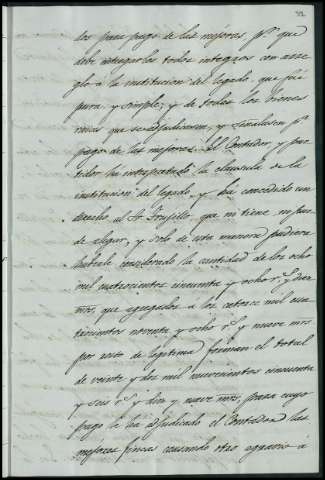 32
los para pago de las mejoras pr. que
debe entregarlos todos integros con arre-
glo á la institucion del legado que fué
pura y simple; y de todos los bienes
mas que se adjudicaron, y señalasen pa.
pago de las mejoras. El Contador y par-
tidor ha interpretado la clausula de la
institucion del legado, y ha concedido un
derecho al Sr. Trujillo, que ni tiene ni pue-
de alegar, y solo de esta manera pudiera
haberle considerado la cantidad de los ocho
mil cuatrocientos cincuenta y ocho rs. y diez
mrs., que agregados á los catorce mil cua-
trocientos noventa y ocho rs. y nueve mrs.
por resto de legitima forman el total
de veinte y dos mil nuevecientos cincuenta
y seis rs. y diez y nueve mrs., para cuyo
pago le ha adjudicado el Contador las
mejores fincas causando otro agravio á